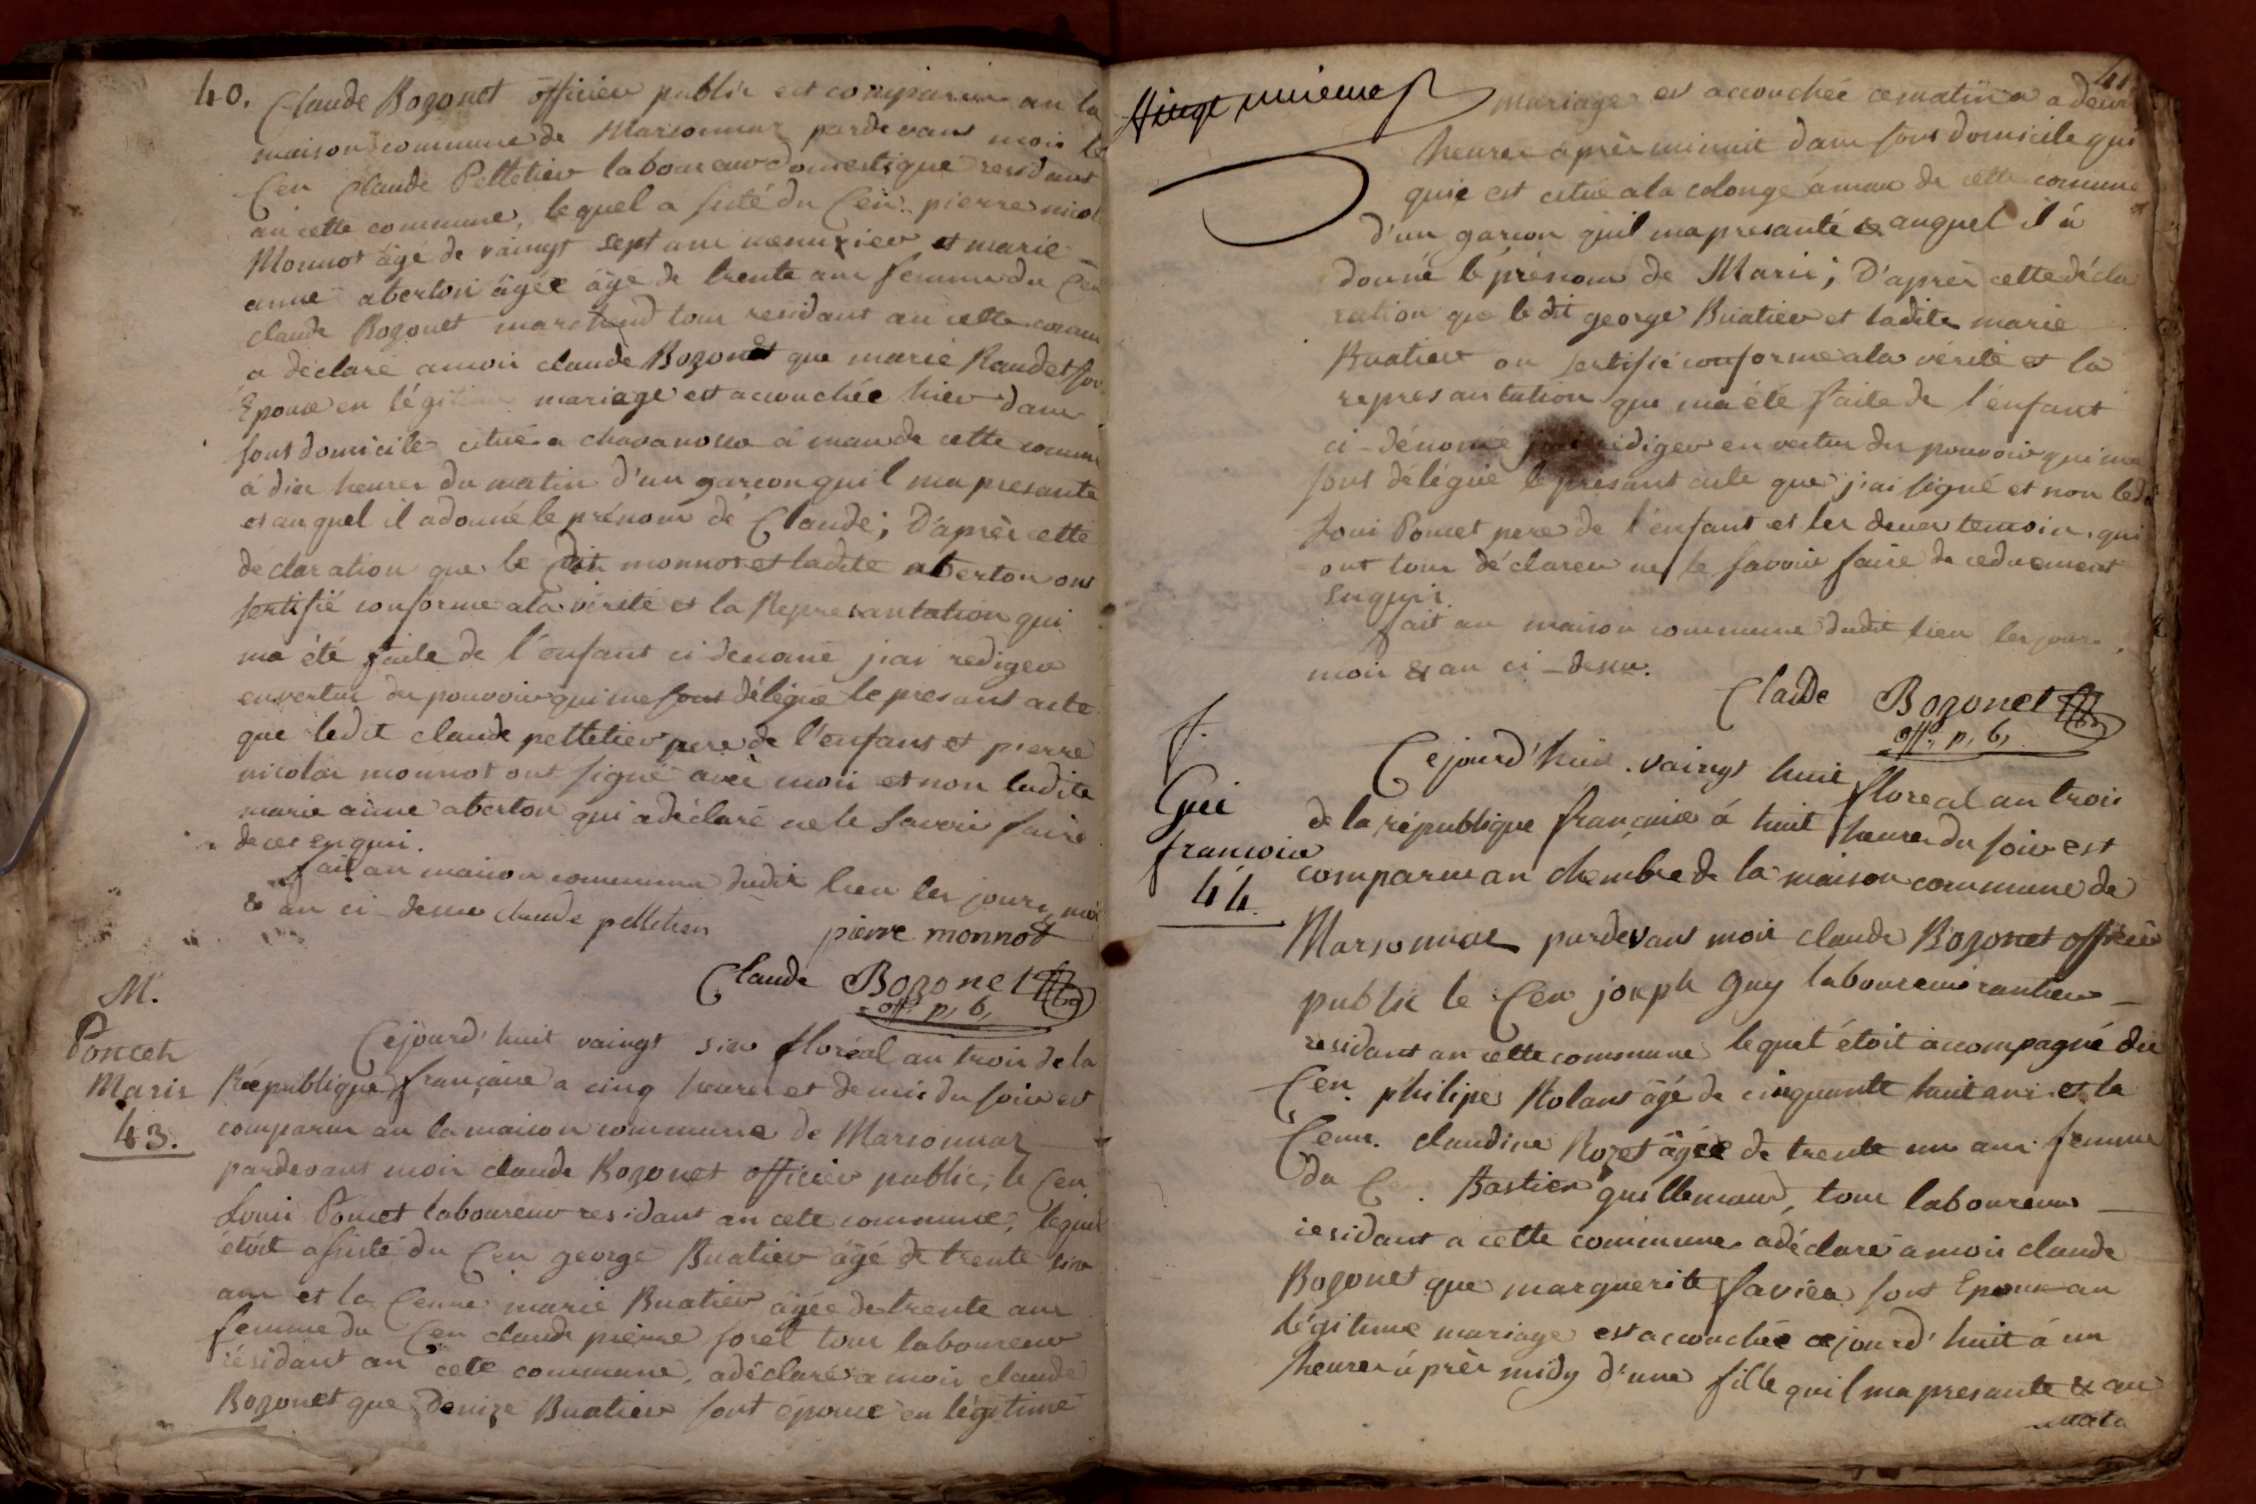 40.
Claude Bozonet officier public est comparu an la
maison commune de Marsonnaz pardevant moi le
Cen Claude Pelletier laboureur domestique residant
an cette commune, lequel a sisté du Cen pierre nicol
Monnot âgé de vaingt sept ans menuzier et marie
anne aberton âgée âge de trente ans femme du Cen
claude Bozonet marchand tous residant an cette comm
a déclaré a moi claude Bozonet que marie Raudet son
Epouse en légitime mariage est accouchée hier dans
sont domicile citué a chavanosse á mande cette comm
á dix heures du matin d'un garcon quil ma presante
et auquel il a donné le prénom de Claude; D'après cette
déclaration que le dit monnot et ladite aberton ont
sertifié conforme ala vérité et la Represantation qui
ma été faite de l'enfant ci denomé j'ai rediger
envertu du pouvoir qui me sont délégué le presant acte
que ledit claude pelletier pere de l'enfant et pierre
nicolas monnot ont signé avec moi et non ladite
marie anne aberton qui a déclaré ne le savoir faire
de ces enquis.
fait an maison commune dudit lieu les jours, moi
& an ci-dessus claude pelletier
pierre monnot
Claude Bozonet
off. p, b,
M.
Poncet
Maris
43.
Cejourd'huit vaingt six floréal an trois de la
République française a cinq heures et demis du soir est
comparu an la maison commune de Marsonnaz
pardevant moi claude Bozonet officier public, le Cen
Louis Poncet laboureur residant an cete commune, lequel
étoit assisté du Cen george Buatier âgé de trente six
ans et la Cenne marie Buatier âgée de trente ans
femme du Cen claude pierre forêt tous laboureur
résidant an cete commune, a déclaré a moi claude
Bozonet que Denize Buatier sont épouse en légitime
41.
Vingt unieme
mariage est accouchée ce matin a deux
heures après minuit dans sont domicile qui
quie est citué a la colonge á man de cette comune
d'un garcon quil ma presanté & auquel il á
donné le prénom de Maris; D'après cette décla
ration que le dit george Buatier et ladite marie
Buatier on sertifié conforme ala vérité et la
represantation que ma été faite de l'enfant
ci-dénomé j'ai rédiger en vertu du pouvoir qui me
sont délégué le presant acte que j'ai signé et non ledit
Louis Poncet pere de l'enfant et les deux temoins qui
ont tous déclarer ne le savoir faire de ce duement
Enquis.
fait an maison commune dudit lieu les jours,
moi & an ci-dessus.
Claude Bozonet
off. p, b,
f.
Gui
francoise
44.
Cejourd'huis vaingt huit floreal an trois
de la république française á huit heures du soir est
comparue an chambre de la maison commune de
Marsonnas pardevant moi claude Bozonet officier
public le Cen joseph Guy laboureur rantier
residant an cette commune lequel étoit acompagné du
Cen. philipes Rolant âgé de cinquante huit ans et la
Cenne. claudine Rozet âgée de trente un ans femme
du C. Bastien guillemaud, tous laboureur
residant a cette commune a déclaré a moi claude
Bozonet que marguerite favier sont Epouse an
légitime mariage est accouchée cejourd'huit á un
heures á près midy d'une fille quil ma presante & au